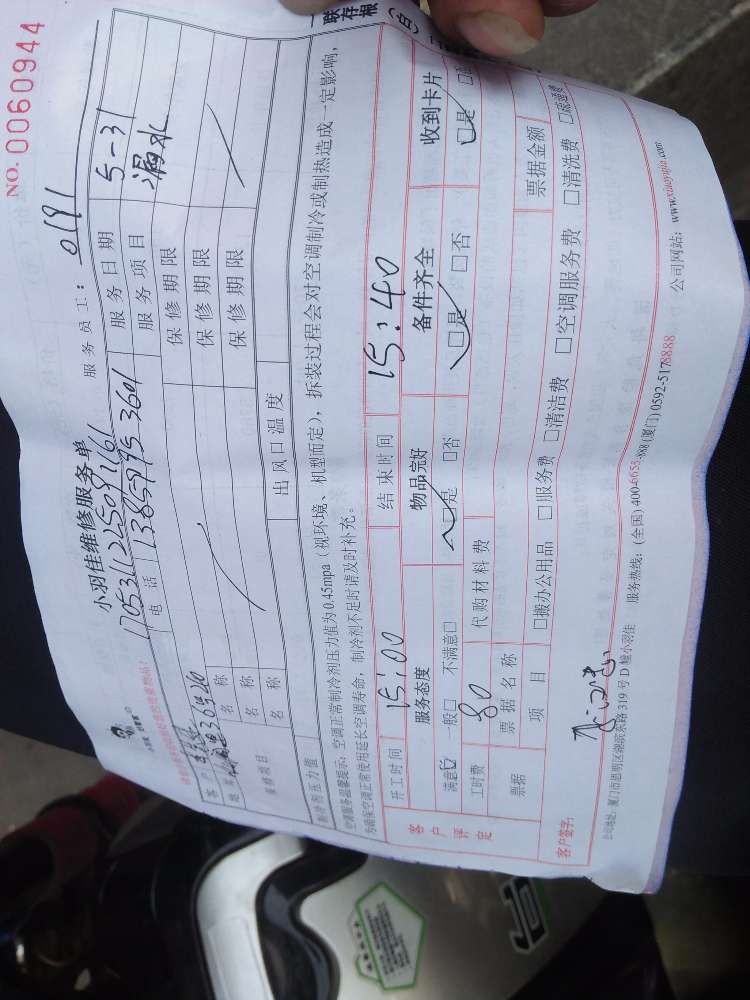 NO. 0060944
小羽佳维修服务单
服务员工: 0191
1705311225092161
电话 13859735360
服务日期 5-31
服务项目 漏水
名称 保修期限
名称 保修期限
名称 保修期限
制冷剂压力值 出风口温度
空调服务温馨提示:空调正常制冷剂压力值为0.45mpa(视环境、机型而定),拆装过程会对空调制冷或制热造成一定影响,
为确保空调正常使用延长空调寿命,制冷剂不足时请及时补充。
开工时间 15:00 结束时间 15:40
客户评定
服务态度 物品完好 备件齐全 收到卡片
满意☑ 一般□ 不满意□ □是 □否 □是 □否 □是
工时费 80 代购材料费
票据 票据名称 票据金额
项目 □搬办公用品 □服务费 □清洁费 □空调服务费 □清洗费 □疏通费
客户签字:
公司地址:厦门市思明区湖滨东路319号D幢小羽佳 服务热线:(全国)400-6655-888(厦门)0592-5178888 公司网站:www.xiaoyujia.com
一联存根(白)